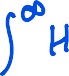 ∫^∞ H